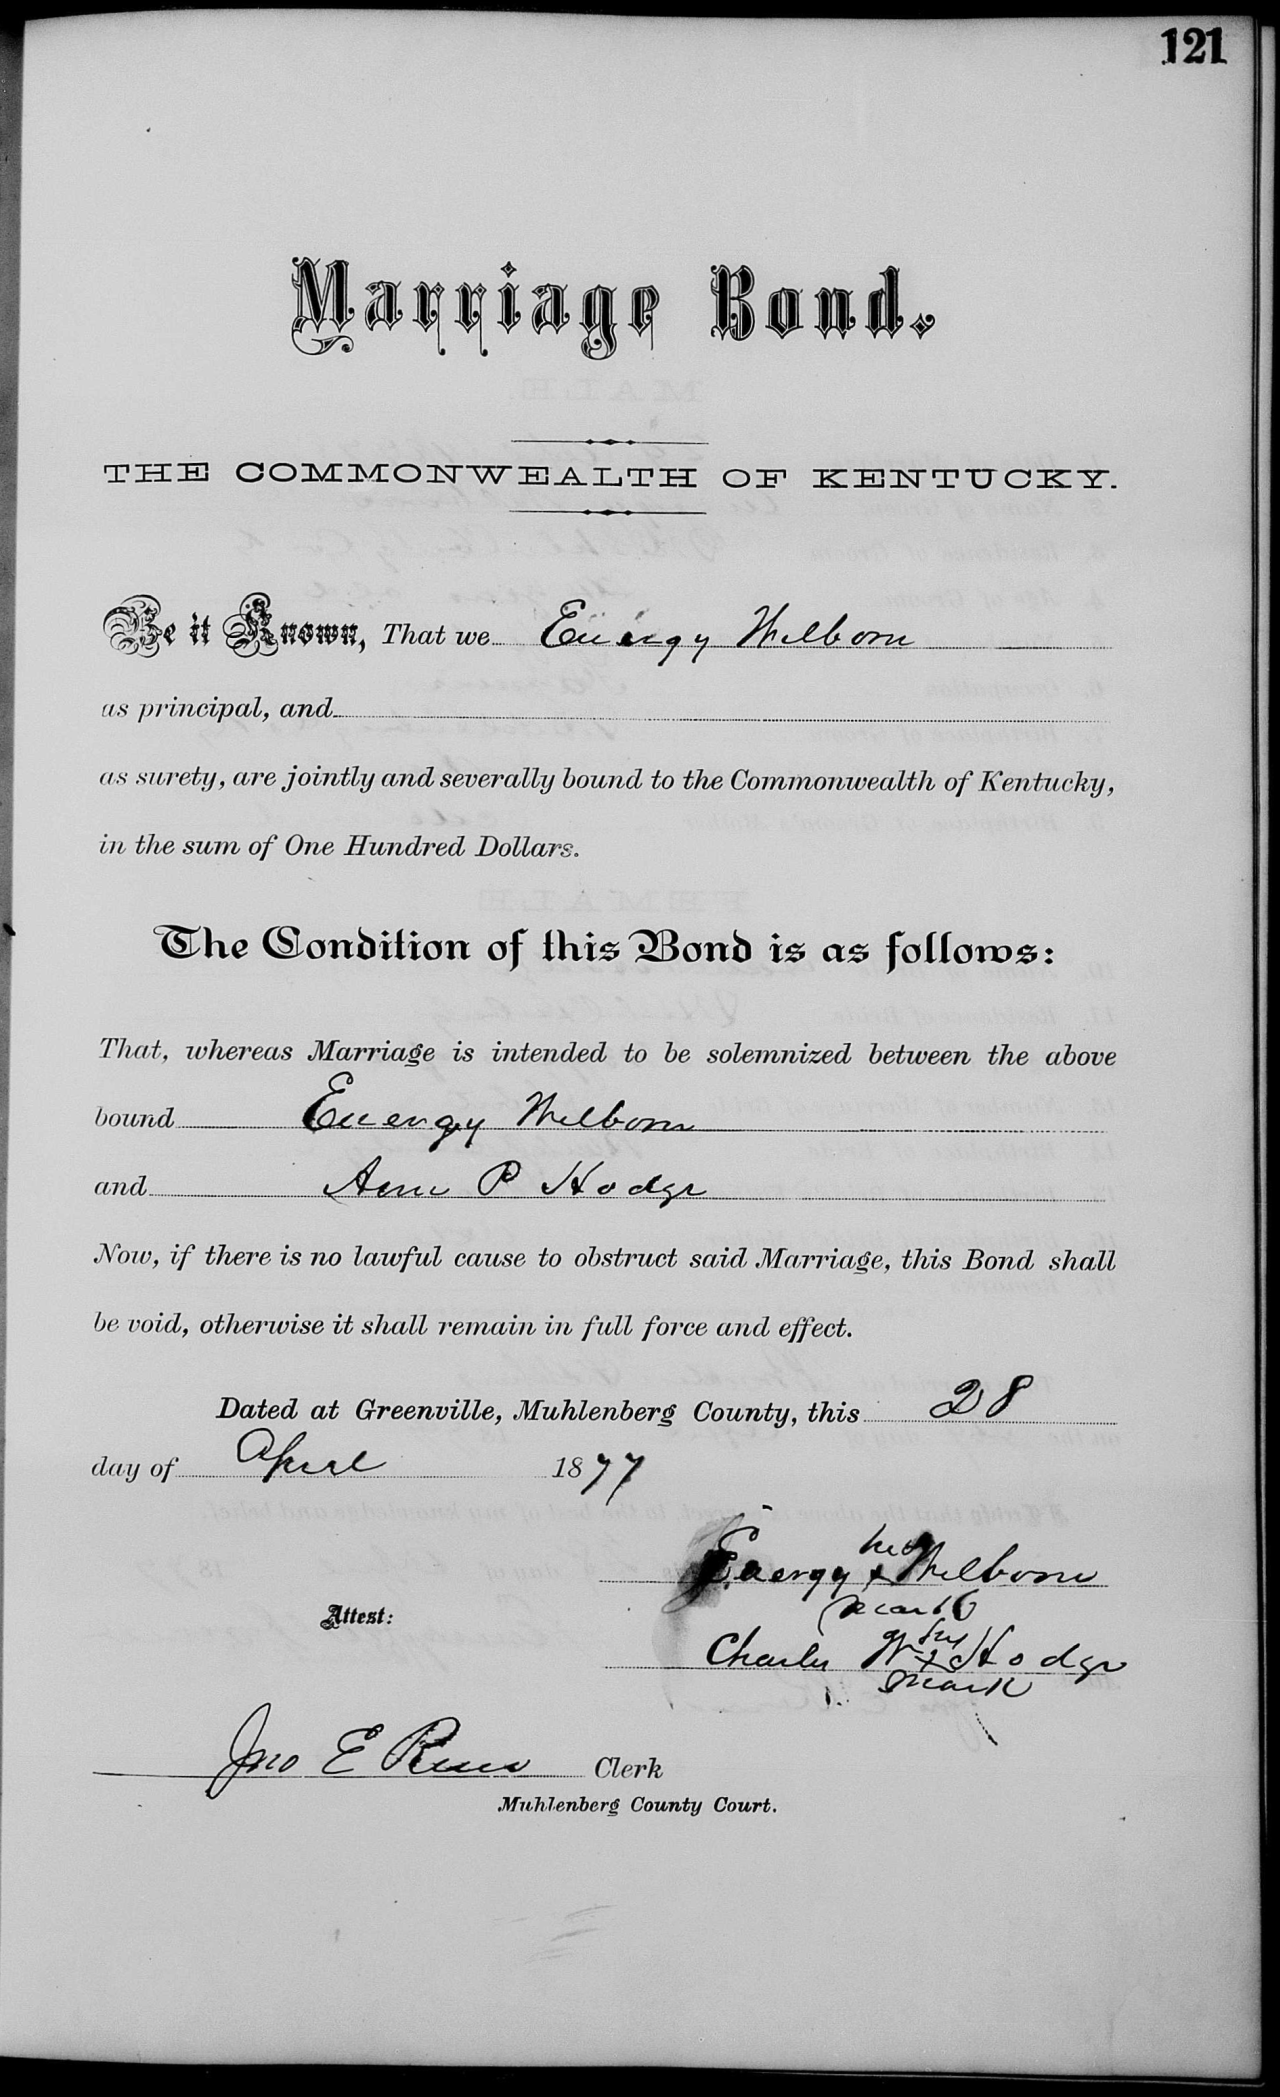 121
Marriage Bond.
THE COMMONWEALTH OF KENTUCKY.
Be it Known, That we Energy Welborn
as principal, and
as surety, are jointly and severally bound to the Commonwealth of Kentucky,
in the sum of One Hundred Dollars.
The Condition of this Bond is as follows:
That, whereas Marriage is intended to be solemnized between the above
bound Energy Welborn
and Ann P Hodge
Now, if there is no lawful cause to obstruct said Marriage, this Bond shall
be void, otherwise it shall remain in full force and effect.
Dated at Greenville, Muhlenberg County, this 28
day of April 1877
his
Energy x Welborn
mark
Attest:
his
Charles W x Hodge
mark
Jno E Reno Clerk
Muhlenberg County Court.